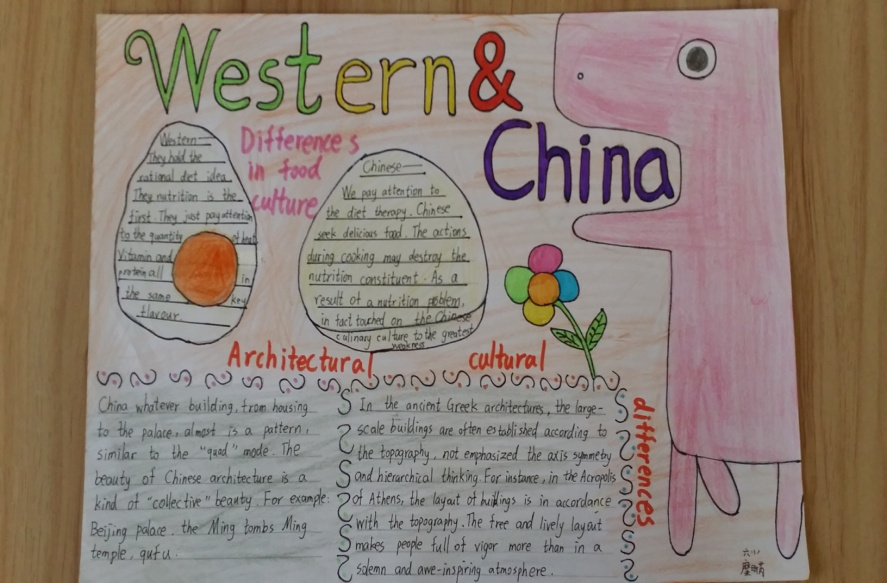 Western &
China
Differences
in food
culture
Western——
They hold the
rational diet idea.
They nutrition is the
first. They just pay attention
to the quantity of heat
Vitamin and
protein all in
the same key
flavour
Chinese——
We pay attention to
the diet therapy. Chinese
seek delicious food. The actions
during cooking may destroy the
nutrition constituent. As a
result of a nutrition problem,
in fact touched on the Chinese
culinary culture to the greatest
weakness
Architectural cultural
differences
China whatever building, from housing
to the palace, almost is a pattern,
similar to the "quad" mode. The
beauty of Chinese architecture is a
kind of "collective" beauty. For example:
Beijing palace, the Ming tombs Ming
temple, qufu.
In the ancient Greek architectures, the large-
scale buildings are often established according to
the topography, not emphasized the axis symmetry
and hierarchical thinking. For instance, in the Acropolis
of Athens, the layout of buildings is in accordance
with the topography. The tree and lively layout
makes people full of vigor more than in a
solemn and awe-inspiring atmosphere.